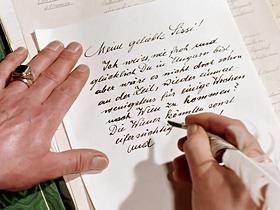 Meine geliebte Sissi!
Ich weiss, wie froh und
glücklich Du in Ungarn bist,
aber wäre es nicht doch schon
an der Zeit, wieder einmal
wenigstens für einige Wochen
nach Wien zu kommen?
Die Wiener könnten sonst
eifersüchtig
und